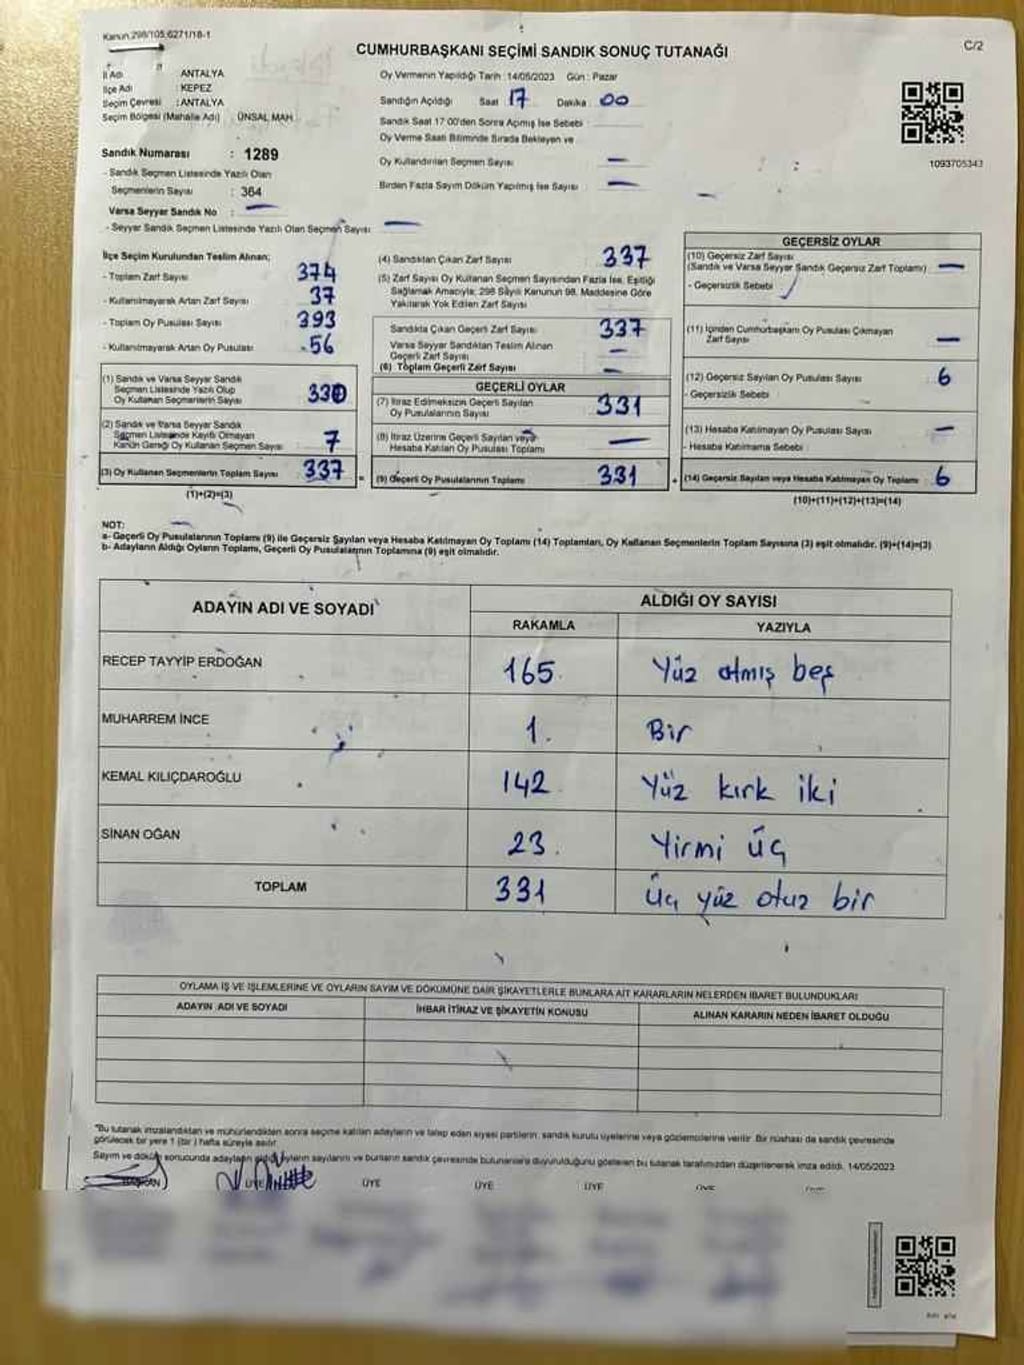 Kanun.298/105,6271/18-1
C/2
CUMHURBAŞKANI SEÇİMİ SANDIK SONUÇ TUTANAĞI
İl Adı : ANTALYA
İlçe Adı : KEPEZ
Seçim Çevresi : ANTALYA
Seçim Bölgesi (Mahalle Adı) ÜNSAL MAH.
Sandık Numarası : 1289
- Sandık Seçmen Listesinde Yazılı Olan
Seçmenlerin Sayısı : 364
Varsa Seyyar Sandık No : —
- Seyyar Sandık Seçmen Listesinde Yazılı Olan Seçmen Sayısı —
Oy Vermenin Yapıldığı Tarih : 14/05/2023 Gün : Pazar
Sandığın Açıldığı Saat 17 Dakika 00
Sandık Saat 17:00'den Sonra Açmış İse Sebebi
Oy Verme Saati Bitiminde Sırada Bekleyen ve
Oy Kullandırılan Seçmen Sayısı —
Birden Fazla Sayım Döküm Yapılmış İse Sayısı —
1093705343
İlçe Seçim Kurulundan Teslim Alınan;
- Toplam Zarf Sayısı 374
- Kullanılmayarak Artan Zarf Sayısı 37
- Toplam Oy Pusulası Sayısı 393
- Kullanılmayarak Artan Oy Pusulası 56
(1) Sandık ve Varsa Seyyar Sandık
Seçmen Listesinde Yazılı Olup
Oy Kullanan Seçmenlerin Sayısı 330
(2) Sandık ve Varsa Seyyar Sandık
Seçmen Listesinde Kayıtlı Olmayan
Kanun Gereği Oy Kullanan Seçmen Sayısı 7
(3) Oy Kullanan Seçmenlerin Toplam Sayısı 337
(1)+(2)=(3)
(4) Sandıktan Çıkan Zarf Sayısı 337
(5) Zarf Sayısı Oy Kullanan Seçmen Sayısından Fazla İse, Eşitliği
Sağlamak Amacıyla; 298 Sayılı Kanunun 98. Maddesine Göre
Yakılarak Yok Edilen Zarf Sayısı
Sandıkta Çıkan Geçerli Zarf Sayısı 337
Varsa Seyyar Sandıktan Teslim Alınan
Geçerli Zarf Sayısı —
(6) Toplam Geçerli Zarf Sayısı —
GEÇERLİ OYLAR
(7) İtiraz Edilmeksizin Geçerli Sayılan
Oy Pusulalarının Sayısı 331
(8) İtiraz Üzerine Geçerli Sayılan veya
Hesaba Katılan Oy Pusulası Toplamı —
(9) Geçerli Oy Pusulalarının Toplamı 331
GEÇERSİZ OYLAR
(10) Geçersiz Zarf Sayısı
(Sandık ve Varsa Seyyar Sandık Geçersiz Zarf Toplamı) —
- Geçersizlik Sebebi
(11) İçinden Cumhurbaşkanı Oy Pusulası Çıkmayan
Zarf Sayısı —
(12) Geçersiz Sayılan Oy Pusulası Sayısı 6
- Geçersizlik Sebebi
(13) Hesaba Katılmayan Oy Pusulası Sayısı —
- Hesaba Katılmama Sebebi
(14) Geçersiz Sayılan veya Hesaba Katılmayan Oy Toplamı 6
(10)+(11)+(12)+(13)=(14)
NOT:
a- Geçerli Oy Pusulalarının Toplamı (9) ile Geçersiz Sayılan veya Hesaba Katılmayan Oy Toplamı (14) Toplamları, Oy Kullanan Seçmenlerin Toplam Sayısına (3) eşit olmalıdır. (9)+(14)=(3)
b- Adayların Aldığı Oyların Toplamı, Geçerli Oy Pusulalarının Toplamına (9) eşit olmalıdır.
ADAYIN ADI VE SOYADI ALDIĞI OY SAYISI
RAKAMLA YAZIYLA
RECEP TAYYİP ERDOĞAN 165 Yüz atmış beş
MUHARREM İNCE 1. Bir
KEMAL KILIÇDAROĞLU 142 Yüz kırk iki
SİNAN OĞAN 23. Yirmi üç
TOPLAM 331 Üç yüz otuz bir
OYLAMA İŞ VE İŞLEMLERİNE VE OYLARIN SAYIM VE DÖKÜMÜNE DAİR ŞİKAYETLERLE BUNLARA AİT KARARLARIN NELERDEN İBARET BULUNDUKLARI
ADAYIN ADI VE SOYADI İHBAR İTİRAZ VE ŞİKAYETİN KONUSU ALINAN KARARIN NEDEN İBARET OLDUĞU
"Bu tutanak imzalandıktan ve mühürlendikten sonra seçime katılan adayların ve talep eden siyasi partilerin, sandık kurulu üyelerine veya gözlemcilerine verilir. Bir nüshası da sandık çevresinde
görülecek bir yere 1 (bir ) hafta süreyle asılır.
Sayım ve döküm sonucunda adayların aldığı oyların sayılarını ve bunların sandık çevresinde bulunanlara duyurulduğunu gösteren bu tutanak tarafımızdan düzenlenerek imza edildi. 14/05/2023
BAŞKAN ÜYE ÜYE ÜYE ÜYE ÜYE